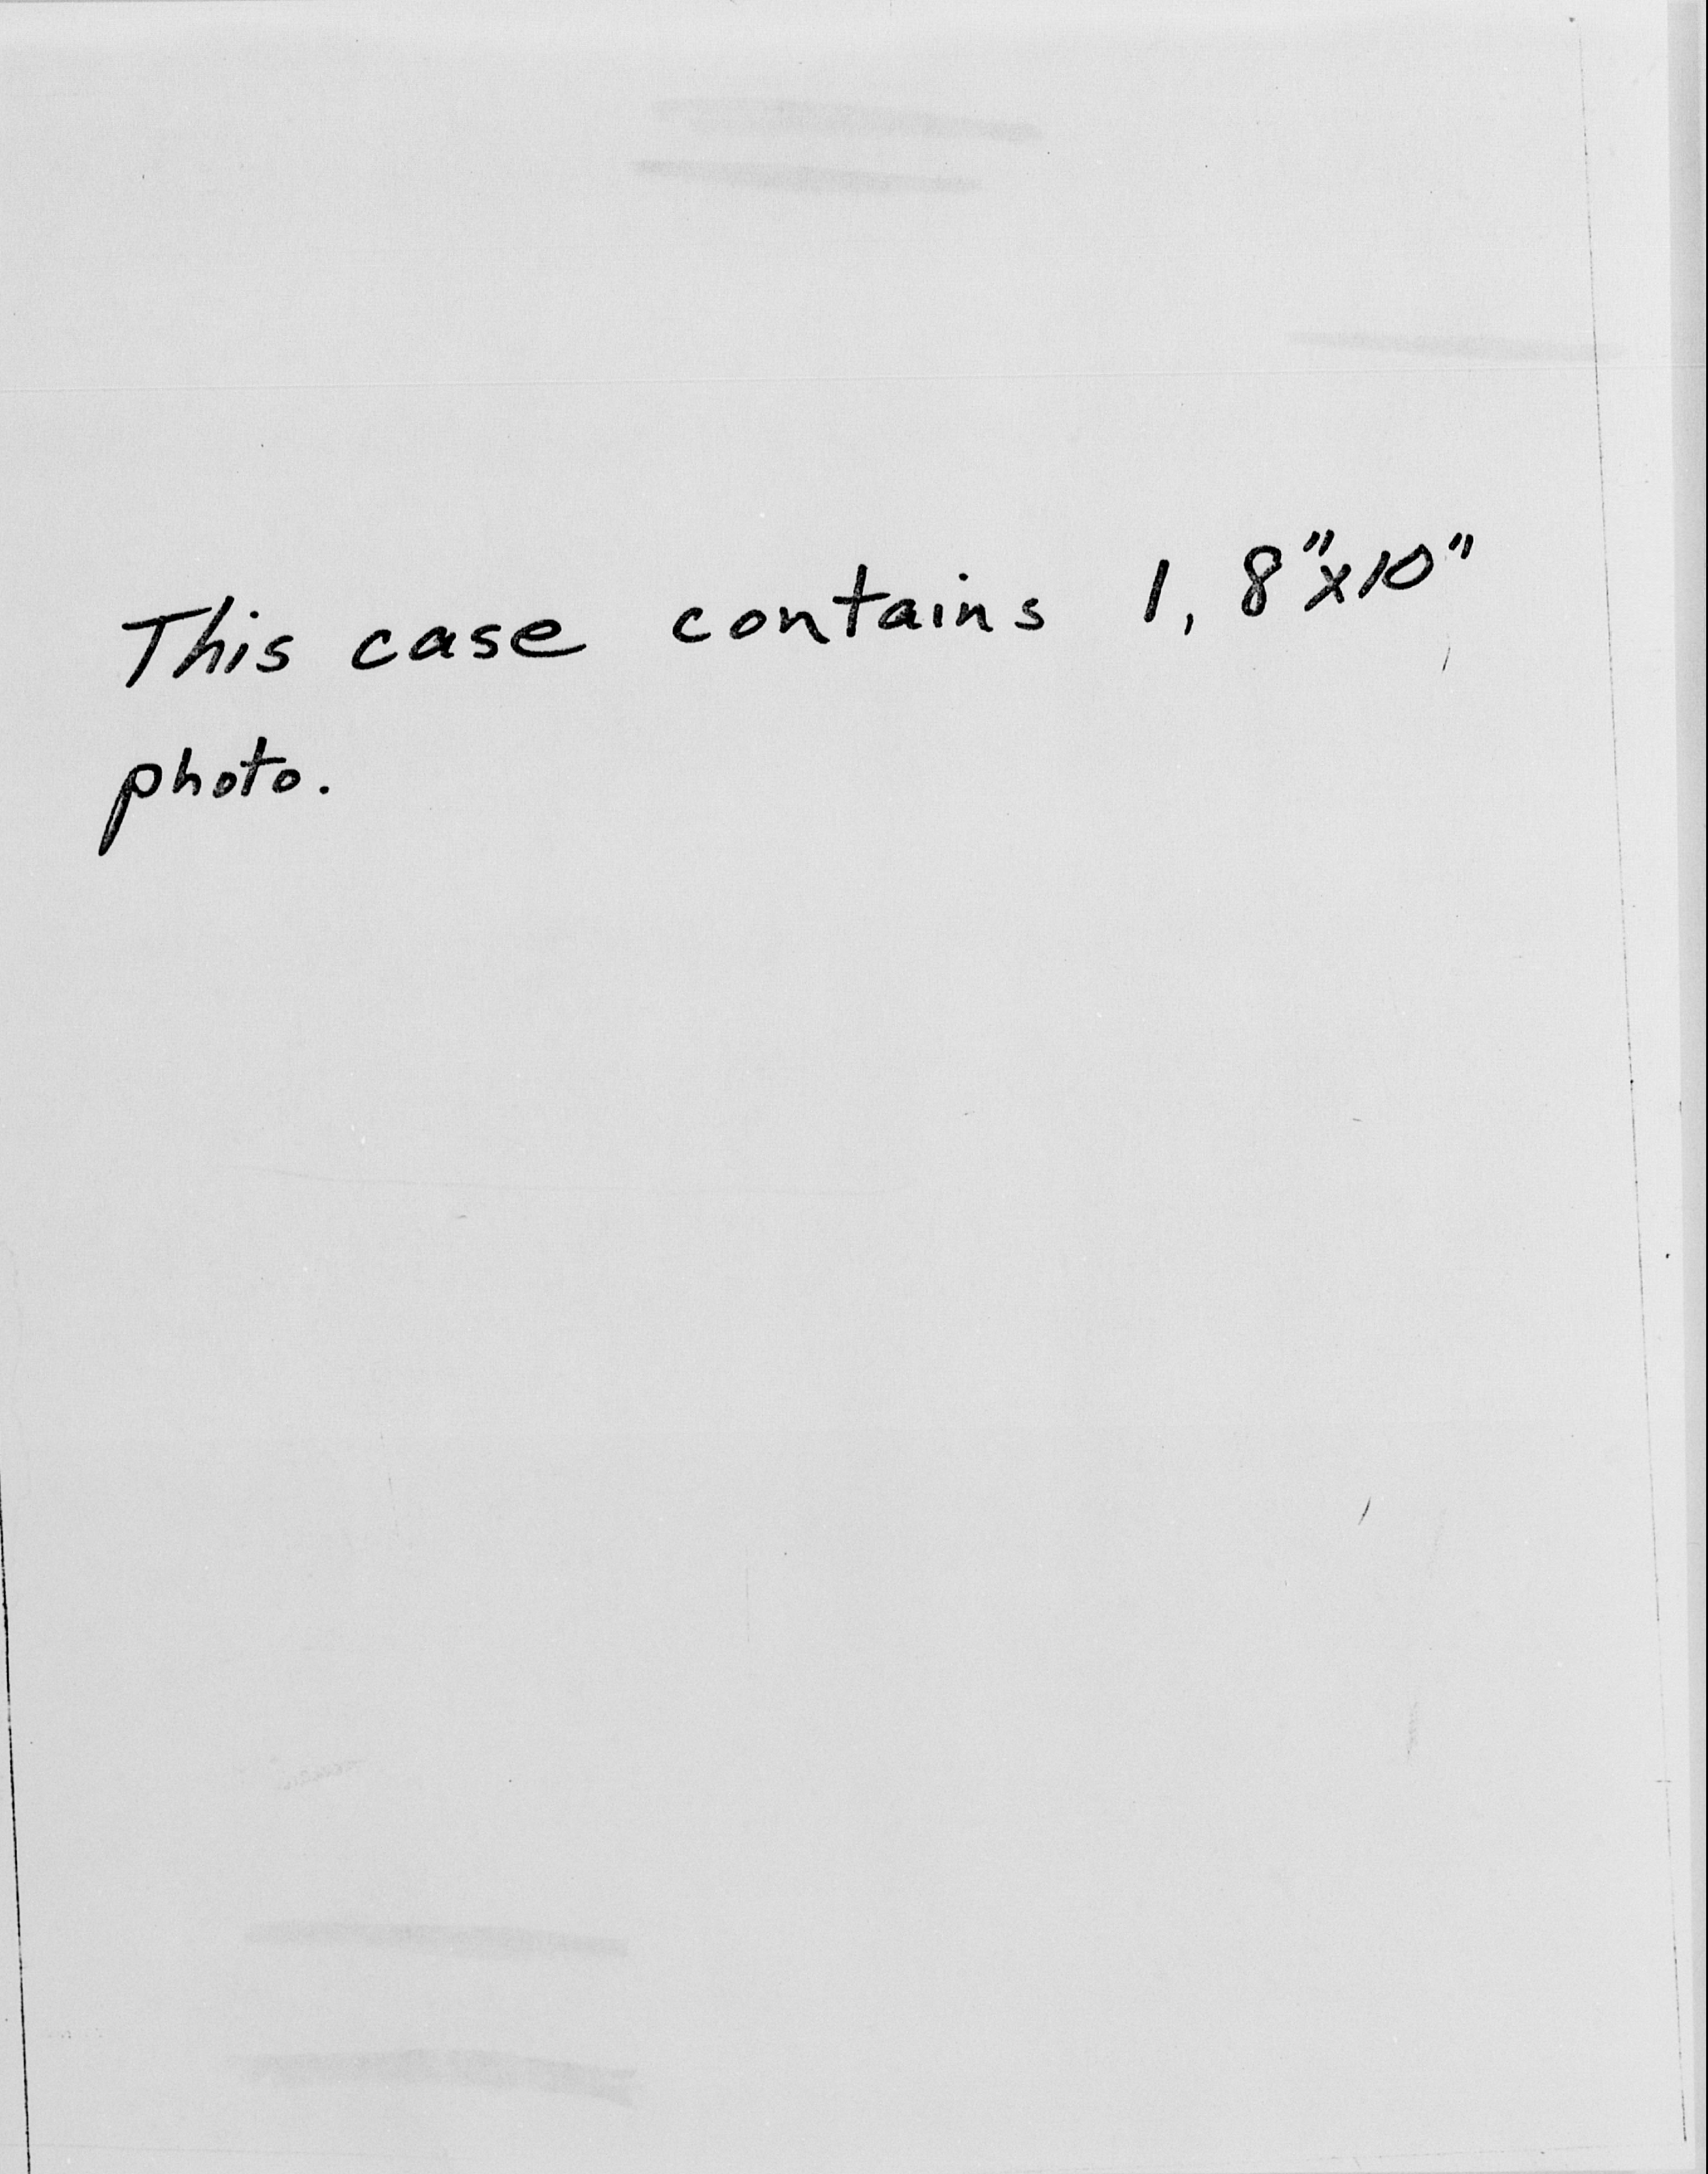 This case contains 1, 8"x10"
photo.